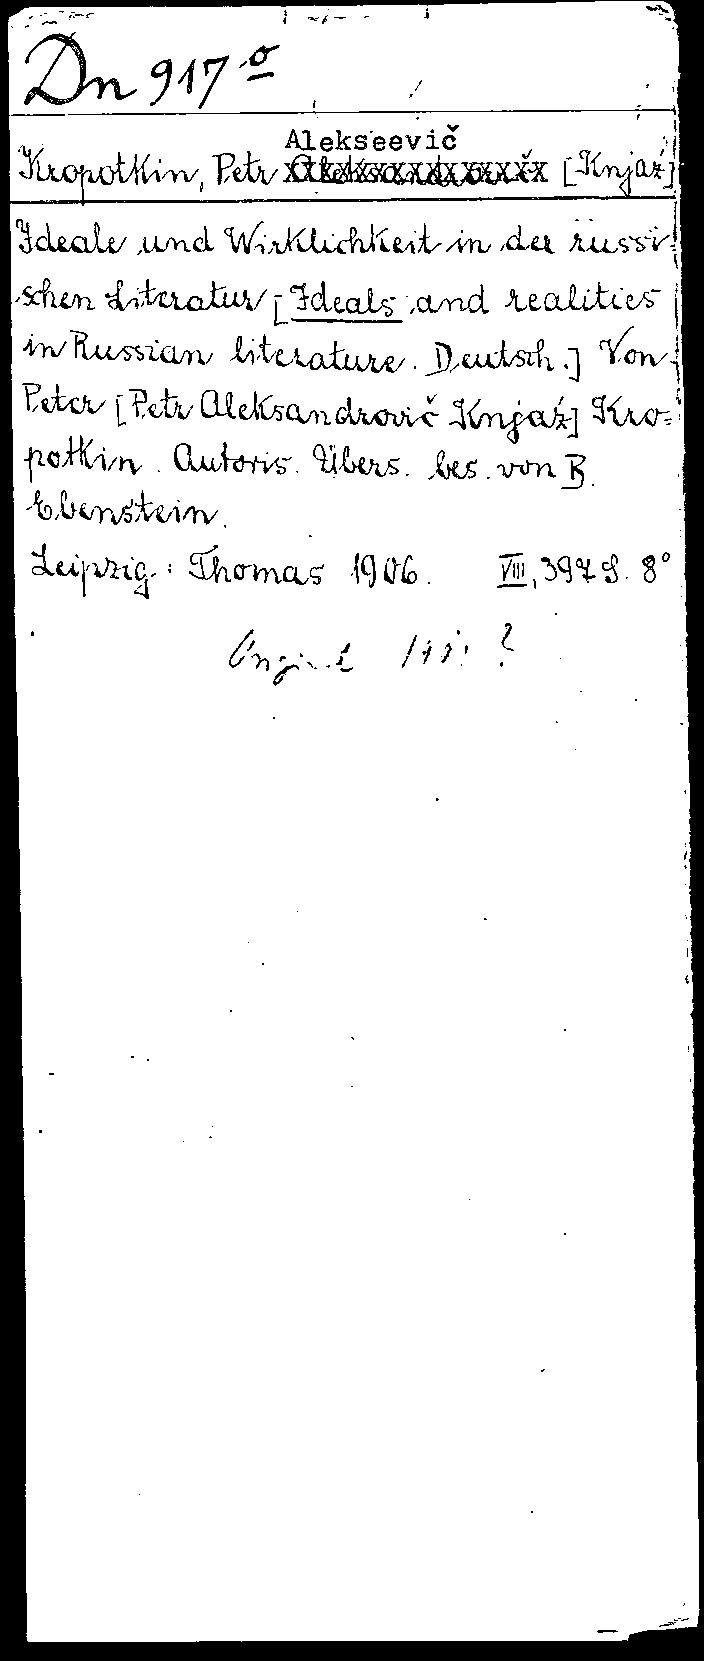 Dn 917 º
Alekseevič
Kropotkin, Petr Aleksandrovič [Knjaź]
Ideale und Wirklichkeit in der russi-
schen Literatur [Ideals and realities
in Russian literature. Deutsch.] Von
Peter [Petr Aleksandrovič Knjaź] Kro=
potkin. Autoris. Übers. bes. von B.
Ebenstein.
Leipzig: Thomas 1906. VIII, 397 S. 8°
?